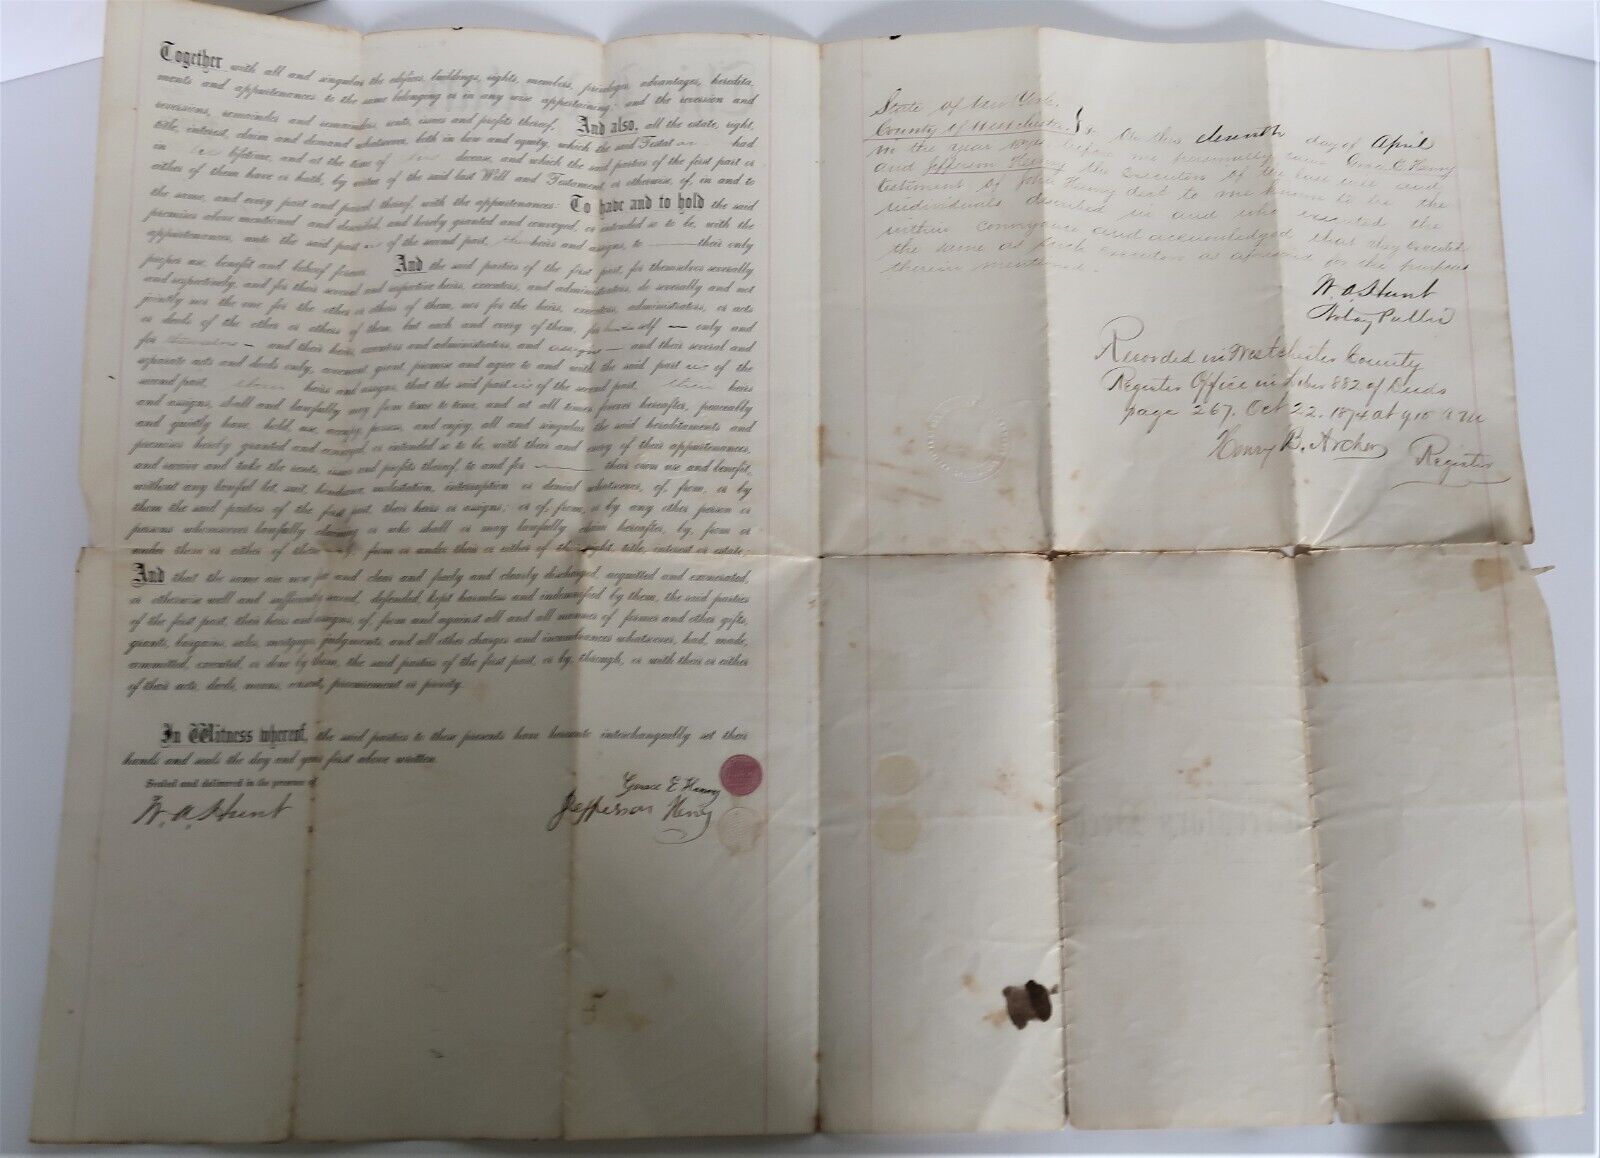 Together with all and singular the edifices, buildings, rights, members, privileges, advantages, heredita-
ments and appurtenances to the same belonging or in any wise appertaining: and the reversion and
reversions, remainder and remainders, rents, issues and profits thereof. And also, all the estate, right,
title, interest, claim and demand whatsoever, both in law and equity, which the said Testat had
in lifetime, and at the time of decease, and which the said parties of the first part or
either of them have or hath, by virtue of the said last Will and Testament or otherwise, of, in and to
the same, and every part and parcel thereof, with the appurtenances: To have and to hold the said
premises above mentioned and described, and hereby granted and conveyed, or intended so to be, with the
appurtenances, unto the said part of the second part, heirs and assigns, to their only
proper use, benefit and behoof forever. And the said parties of the first part, for themselves severally
and respectively, and for their several and respective heirs, executors, and administrators, do severally and not
jointly nor the one for the other or others of them, nor for the heirs, executors, administrators, or acts
or deeds of the other or others of them, but each and every of them, for self only and
for themselves and their heirs, executors and administrators, and assigns and their several and
separate acts and deeds only, covenant grant promise and agree to and with the said part of the
second part, their heirs and assigns, that the said part of the second part, their heirs
and assigns, shall and lawfully may from time to time, and at all times forever hereafter, peaceably
and quietly have, hold, use, occupy possess, and enjoy, all and singular the said hereditaments and
premises hereby granted and conveyed, or intended so to be, with their and every of their appurtenances,
and receive and take the rents, issues and profits thereof, to and for their own use and benefit,
without any lawful let, suit, hindrance, molestation, interruption or denial whatsoever, of, from, or by
them the said parties of the first part, their heirs or assigns; or of, from, or by any other person or
persons whomsoever lawfully claiming or who shall or may lawfully claim hereafter, by, from or
under them or either of them from or under their or either of their right, title, interest or estate;
And that the same are now free and clear and freely and clearly discharged, acquitted and exonerated,
or otherwise well and sufficiently saved, defended, kept harmless and indemnified by them, the said parties
of the first part, their heirs and assigns, of from and against all and all manner of former and other gifts,
grants, bargains, sales, mortgage, judgments, and all other charges and incumbrances whatsoever, had, made,
committed, executed, or done by them, the said parties of the first part, or by, through, or with their or either
of their acts, deeds, means, consent, procurement or privity.
In Witness whereof, the said parties to these presents have hereunto interchangeably set their
hands and seals the day and year first above written.
Sealed and delivered in the presence of
W. A. Hunt
Grace E Henry
Jefferson Henry
State of New York
County of Westchester } On this Seventh day of April
in the year before me personally came Grace E Henry
and Jefferson Henry the Executors of the last will and
testament of John Henry decd to me known to be the
individuals described in and who executed the
within conveyance and acknowledged that they executed
the same as such executors as aforesaid for the purposes
therein mentioned.
W. A. Hunt
Notary Public
Recorded in Westchester County
Register Office in Liber 882 of Deeds
page 267. Oct 22. 1874 at 9 10 A M
Henry B. Archer
Register